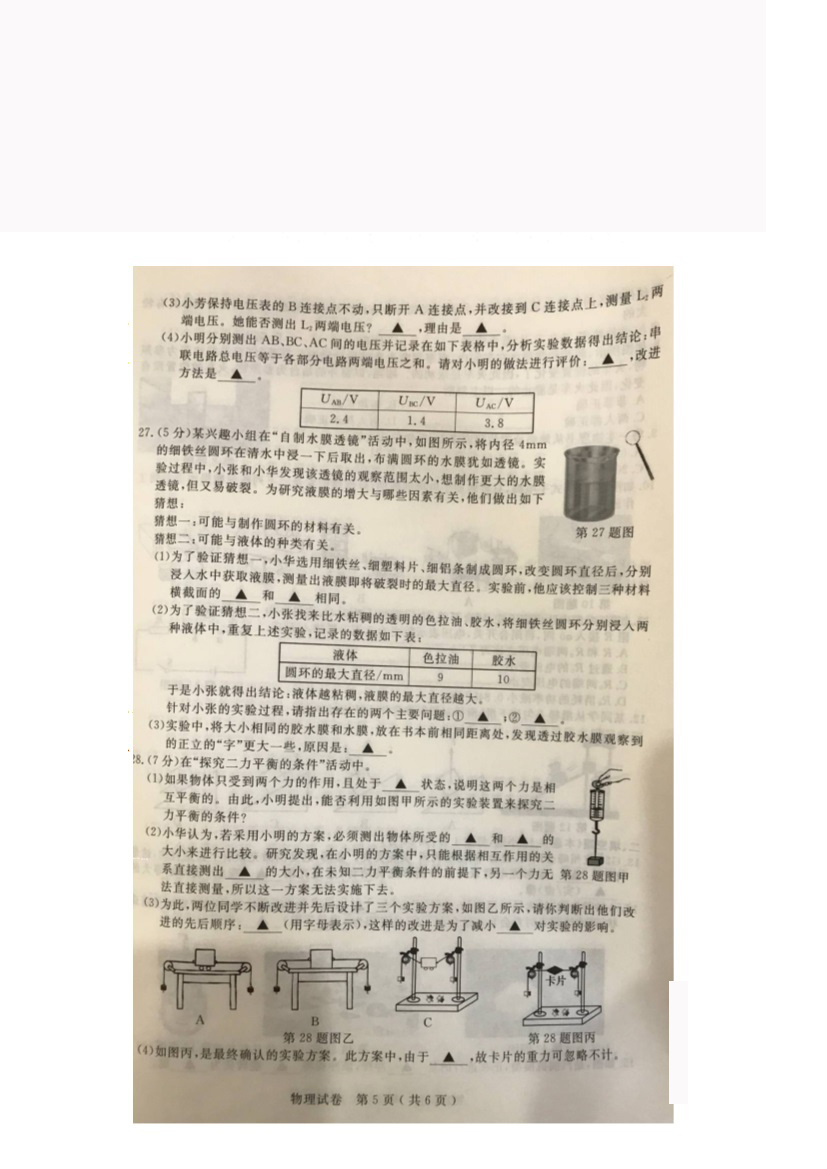 (3)小芳保持电压表的 B 连接点不动,只断开 A 连接点,并改接到 C 连接点上,测量 L₂ 两
端电压。她能否测出 L₂ 两端电压? ▲ ,理由是 ▲ 。
(4)小明分别测出 AB、BC、AC 间的电压并记录在如下表格中,分析实验数据得出结论:串
联电路总电压等于各部分电路两端电压之和。请对小明的做法进行评价: ▲ ,改进
方法是 ▲ 。
U_AB/V U_BC/V U_AC/V
2.4 1.4 3.8
27.(5 分)某兴趣小组在“自制水膜透镜”活动中,如图所示,将内径 4mm
的细铁丝圆环在清水中浸一下后取出,布满圆环的水膜犹如透镜。实
验过程中,小张和小华发现该透镜的观察范围太小,想制作更大的水膜
透镜,但又易破裂。为研究液膜的增大与哪些因素有关,他们做出如下
猜想:
第 27 题图
猜想一:可能与制作圆环的材料有关。
猜想二:可能与液体的种类有关。
(1)为了验证猜想一,小华选用细铁丝、细塑料片、细铝条制成圆环,改变圆环直径后,分别
浸入水中获取液膜,测量出液膜即将破裂时的最大直径。实验前,他应该控制三种材料
横截面的 ▲ 和 ▲ 相同。
(2)为了验证猜想二,小张找来比水粘稠的透明的色拉油、胶水,将细铁丝圆环分别浸入两
种液体中,重复上述实验,记录的数据如下表:
液体 色拉油 胶水
圆环的最大直径/mm 9 10
于是小张就得出结论:液体越粘稠,液膜的最大直径越大。
针对小张的实验过程,请指出存在的两个主要问题:① ▲ ;② ▲ 。
(3)实验中,将大小相同的胶水膜和水膜,放在书本前相同距离处,发现透过胶水膜观察到
的正立的“字”更大一些,原因是: ▲ 。
28.(7 分)在“探究二力平衡的条件”活动中。
(1)如果物体只受到两个力的作用,且处于 ▲ 状态,说明这两个力是相
互平衡的。由此,小明提出,能否利用如图甲所示的实验装置来探究二
力平衡的条件?
(2)小华认为,若采用小明的方案,必须测出物体所受的 ▲ 和 ▲ 的
大小来进行比较。研究发现,在小明的方案中,只能根据相互作用的关
系直接测出 ▲ 的大小,在未知二力平衡条件的前提下,另一个力无
第 28 题图甲
法直接测量,所以这一方案无法实施下去。
(3)为此,两位同学不断改进并先后设计了三个实验方案,如图乙所示,请你判断出他们改
进的先后顺序: ▲ (用字母表示),这样的改进是为了减小 ▲ 对实验的影响。
卡片
A B C
第 28 题图乙 第 28 题图丙
(4)如图丙,是最终确认的实验方案。此方案中,由于 ▲ ,故卡片的重力可忽略不计。
物理试卷 第 5 页(共 6 页)